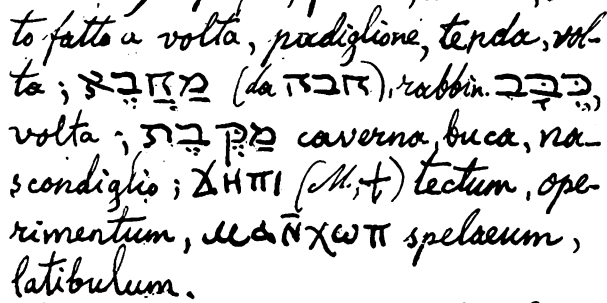 to fatto a volta, padiglione, tenda, vol-
ta ; מַחֲבֶא (da חבה), rabbin.
volta ; מַקֶּבֶת caverna, buca, na-
scondiglio ; ϫⲏⲡⲓ (M., t) tectum, ope-
rimentum, ⲙⲁⲛ̄ⲭⲱⲡ spelaeum,
latibulum.